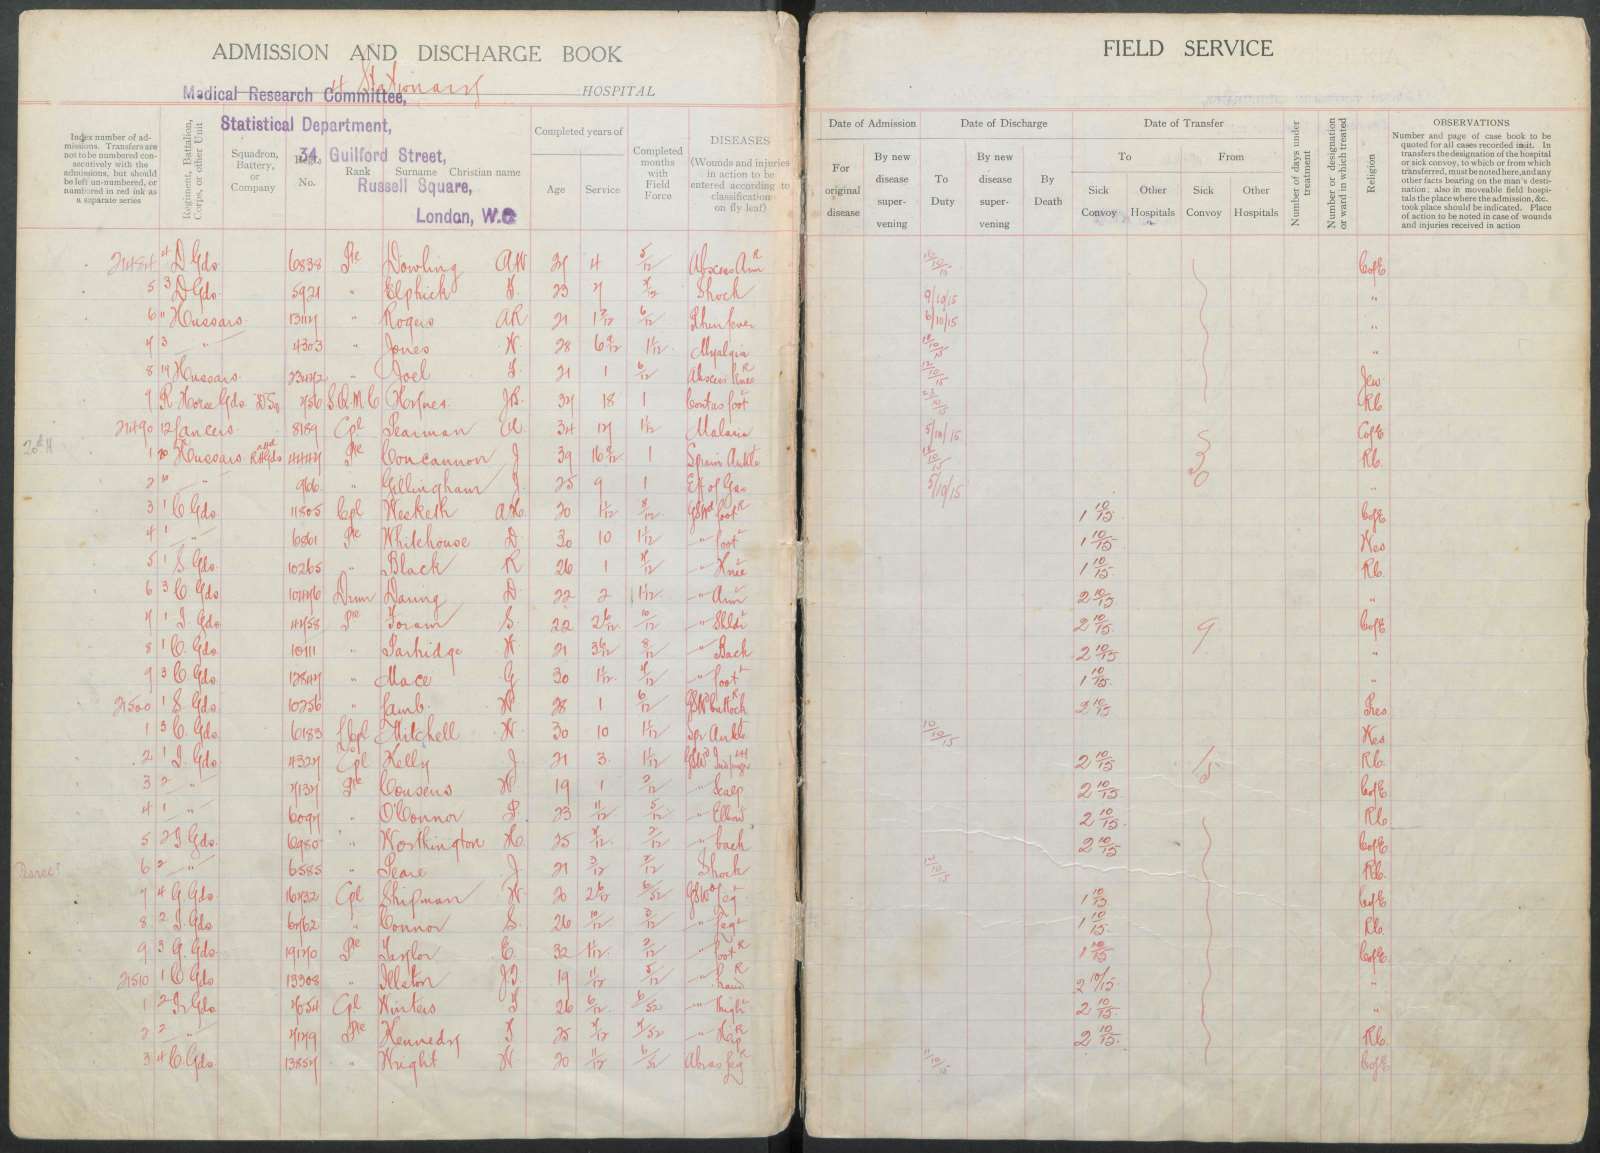 ADMISSION AND DISCHARGE BOOK
4 Stationary HOSPITAL
Medical Research Committee,
Statistical Department,
34, Guilford Street,
Russell Square,
London, W.C
Index number of admissions. Transfers are not to be numbered consecutively with the admissions, but should be left un-numbered, or numbered in red ink as a separate series
Regiment, Battalion, Corps, or other Unit
Squadron, Battery, or Company
Regtl. No.
Rank
Surname
Christian name
Completed years of
Age
Service
Completed months with Field Force
DISEASES
(Wounds and injuries in action to be entered according to classification on fly leaf)
FIELD SERVICE
Date of Admission
For original disease
By new disease supervening
Date of Discharge
To Duty
By new disease supervening
By Death
Date of Transfer
To
Sick Convoy
Other Hospitals
From
Sick Convoy
Other Hospitals
Number of days under treatment
Number or designation or ward in which treated
Religion
OBSERVATIONS
Number and page of case book to be quoted for all cases recorded in it. In transfers the designation of the hospital or sick convoy, to which or from which transferred, must be noted here, and any other facts bearing on the man's destination; also in moveable field hospitals the place where the admission, &c. took place should be indicated. Place of action to be noted in case of wounds and injuries received in action
21484 4 D Gds 6838 Pte Dowling AW 27 4 5/12 Abscess Arm R 12/10/15 CofE
5 3 D Gds 5921 " Elphick F. 23 7 Shock 9/10/15 "
6 11 Hussars " Rogers AR 21 6/12 Rheu fever 6/10/15 "
7 3 " 4303 " Jones W. 28 1 1/12 Myalgia "
8 Hussars " Joel 21 1 6/12 Abscess Knee R 12/10/15 Jew
9 R Horse Gds 756 S.Q.M.C JB. 37 18 1 Contus foot RC
21490 12 Lancers 8189 Cpl Pearman W. 34 17 1 1/12 Malaria 5/10/15 CofE
20th H 1 20 Hussars Pte Concannon J 39 1 Sprain Ankle RC
2 " " Gillingham J. 25 9 1 Eff of Gas 5/10/15 "
3 1 C Gds 11805 Cpl Hesketh AE. 20 1 1/12 8/12 GSWd foot R 1 10/15 CofE
4 1 " 6861 Pte Whitehouse D. 30 10 1 1/12 " foot L 1 10/15 Wes
5 1 S Gds 10265 " Black R 26 1 " Knee L 1 10/15 RC
6 3 C Gds Drum D. 22 2 1 1/12 " Arm L 2 10/15 "
7 1 I Gds Pte Foram S. 22 2 6/12 10/12 " Shldr L 2 10/15 9 CofE
8 1 C. Gds 10111 " Partridge W. 21 3 6/12 8/12 " Back 2 10/15 "
9 3 C Gds " Mace G 30 1 1/12 " foot L 1 10/15 "
21500 1 S Gds 10256 " Lamb. W 28 1 6/12 GSW Buttock R 2 10/15 Pres
1 3 C. Gds 6183 L/Cpl Mitchell W. 30 10 1 1/12 Spr Ankle 10/10/15 Wes
2 1 I. Gds 4327 Cpl Kelly J 21 3. 1 1/12 GSWd 2 10/15 15 RC
3 2 " 7137 Pte Cousens W. 19 1 2/12 " Scalp 2 10/15 CofE
4 1 " 6097 " O'Connor P 23 11/12 5/12 " Elbow 2 10/15 RC
5 2 I Gds. 6980 " Worthington H. 25 7/12 2/12 " back 2 10/15 CofE
6 2 " 6585 " Peare J 21 Shock RC
7 4 G Gds 16432 Cpl Shipman W. 20 2 6/12 6/52 GSWd Leg 1 10/15 CofE
8 2 I. Gds 6762 " Connor S. 26 10/12 2/12 " Leg L 1 10/15 RC
9 3 G. Gds 19170 Pte Taylor E. 32 1 1/12 2/12 " foot R 1 10/15 CofE
21510 1 C Gds 13308 " Illston J.T. 19 11/12 5/12 " hand R 2 10/15 "
1 2 I. Gds 7654 Cpl Winters T 26 6/12 6/52 " thigh L 2 10/15 "
2 2 " 7179 Pte Kennedy T 25 7/12 7/52 " Hip R 2 10/15 RC
3 4 C. Gds 13857 " Wright W 20 11/12 6/52 Abras Leg R 11/10/15 CofE